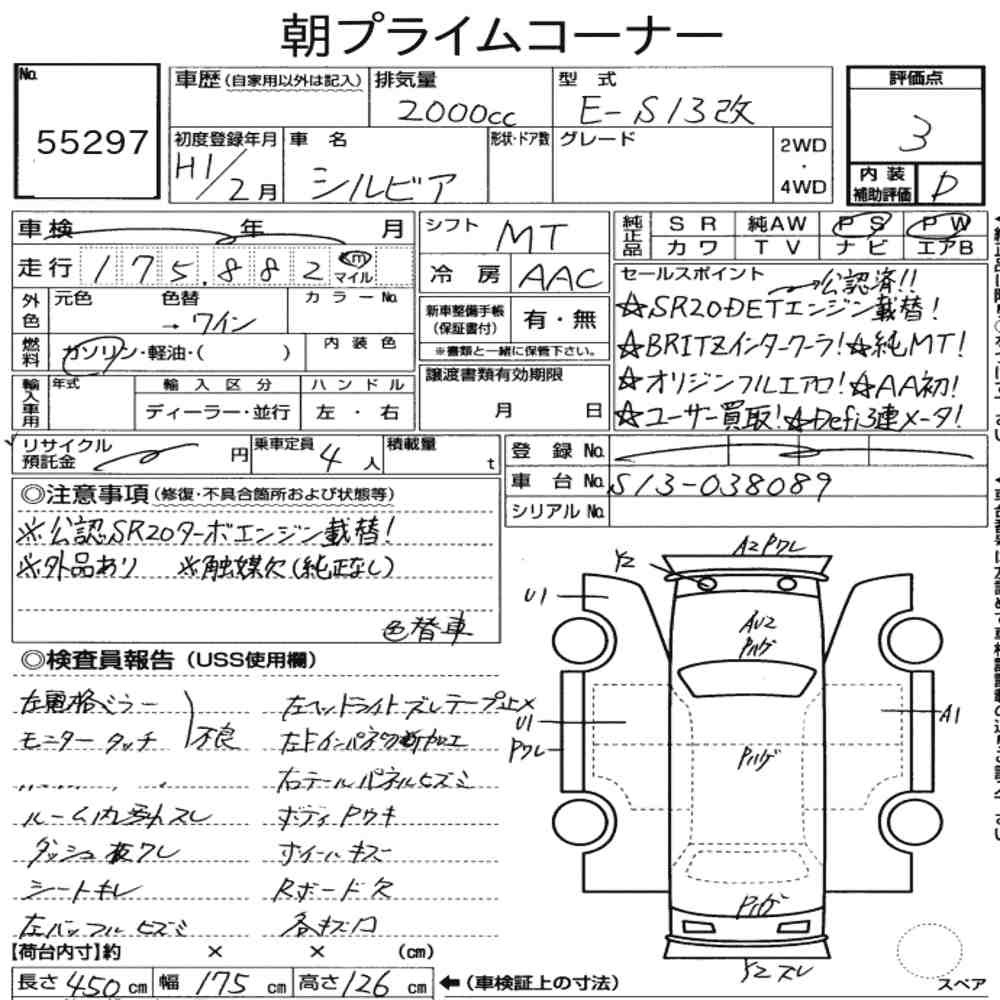 朝プライムコーナー
No.
55297
車歴(自家用以外は記入)
排気量
2000cc
型式
E-S13改
評価点
3
初度登録年月
H1/2月
車名
シルビア
形状・ドア数
グレード
2WD
・
4WD
内装
補助評価
D
車検 年 月
走行 175.882 km
マイル
シフト
MT
冷房
AAC
純正品
SR 純AW PS PW
カワ TV ナビ エアB
外色
元色 色替 カラーNo.
→ワイン
燃料
ガソリン・軽油・( )
内装色
新車整備手帳
(保証書付)
有・無
※書類と一緒に保管下さい。
セールスポイント
公認済!!
☆SR20DETエンジン載替!
☆BRITZインタークーラ!☆純MT!
☆オリジンフルエアロ!☆AA初!
☆ユーザー買取!☆Defi3連メータ!
輸入車用
年式
輸入区分
ディーラー・並行
ハンドル
左・右
譲渡書類有効期限
月 日
リサイクル
預託金
円
乗車定員
4人
積載量
t
登録No.
車台No.
S13-038089
シリアルNo.
◎注意事項(修復・不具合箇所および状態等)
※公認SR20ターボエンジン載替!
※外品あり ※触媒欠(純正なし)
色替車
◎検査員報告(USS使用欄)
左電格ミラー
モニタータッチ
不良
ルーム内
ダッシュ板ワレ
シートキレ
左ヘッドライトズレテープ止メ
左Fインパネ切断加工
右テールパネルヒズミ
ボディPウキ
ホイールキズ
Rボード欠
各キズ凹
Y2
A2Pワレ
U1
AU2
Pハゲ
U1
Pワレ
A1
Pハゲ
Pハゲ
Y2ズレ
【荷台内寸】約 × × (cm)
長さ450cm 幅175cm 高さ126cm
←(車検証上の寸法)
スペア